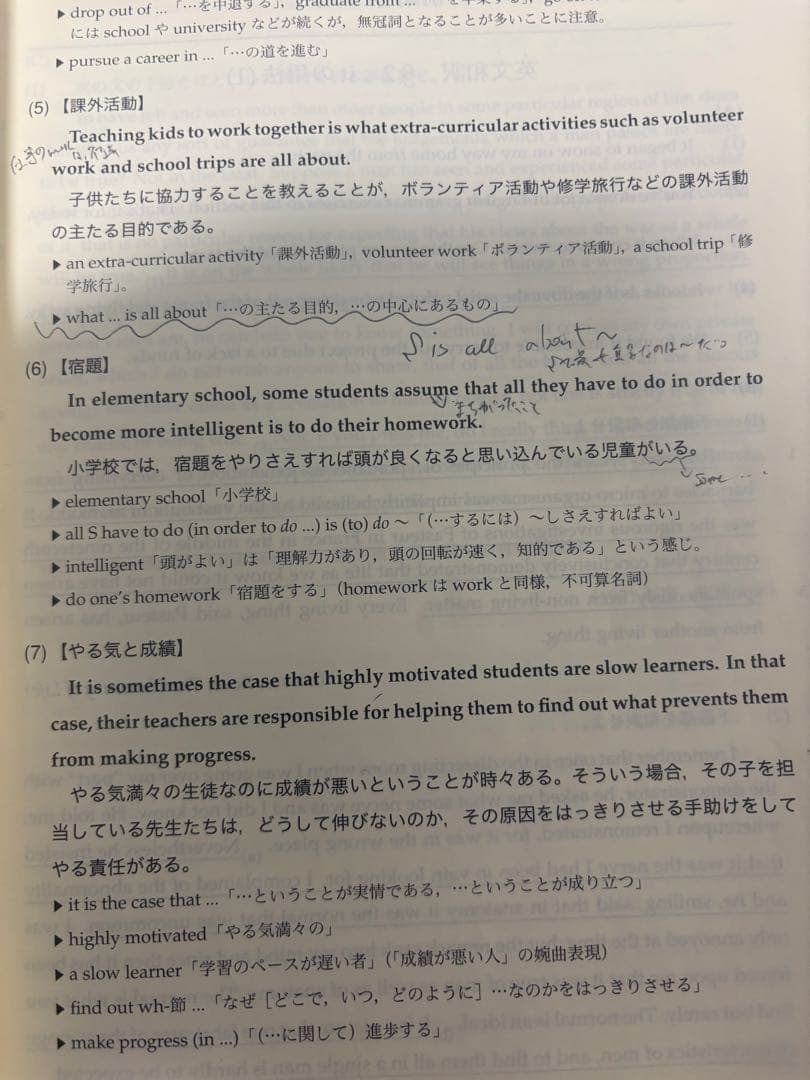 ▶ drop out of ...「…を中退する」, graduate from ...
には school や university などが続くが，無冠詞となることが多いことに注意。
▶ pursue a career in ...「…の道を進む」
(5) 【課外活動】
Teaching kids to work together is what extra-curricular activities such as volunteer
work and school trips are all about.
子供たちに協力することを教えることが，ボランティア活動や修学旅行などの課外活動
の主たる目的である。
▶ an extra-curricular activity「課外活動」, volunteer work「ボランティア活動」, a school trip「修
学旅行」。
▶ what ... is all about「…の主たる目的，…の中心にあるもの」
S is all about 〜
(6) 【宿題】
In elementary school, some students assume that all they have to do in order to
まちがったこと
become more intelligent is to do their homework.
小学校では，宿題をやりさえすれば頭が良くなると思い込んでいる児童がいる。
some ....
▶ elementary school「小学校」
▶ all S have to do (in order to do ...) is (to) do 〜「(…するには) 〜しさえすればよい」
▶ intelligent「頭がよい」は「理解力があり，頭の回転が速く，知的である」という感じ。
▶ do one's homework「宿題をする」(homework は work と同様，不可算名詞)
(7) 【やる気と成績】
It is sometimes the case that highly motivated students are slow learners. In that
case, their teachers are responsible for helping them to find out what prevents them
from making progress.
やる気満々の生徒なのに成績が悪いということが時々ある。そういう場合，その子を担
当している先生たちは，どうして伸びないのか，その原因をはっきりさせる手助けをして
やる責任がある。
▶ it is the case that ...「…ということが実情である，…ということが成り立つ」
▶ highly motivated「やる気満々の」
▶ a slow learner「学習のペースが遅い者」(「成績が悪い人」の婉曲表現)
▶ find out wh-節 ...「なぜ［どこで，いつ，どのように］…なのかをはっきりさせる」
▶ make progress (in ...)「(…に関して) 進歩する」